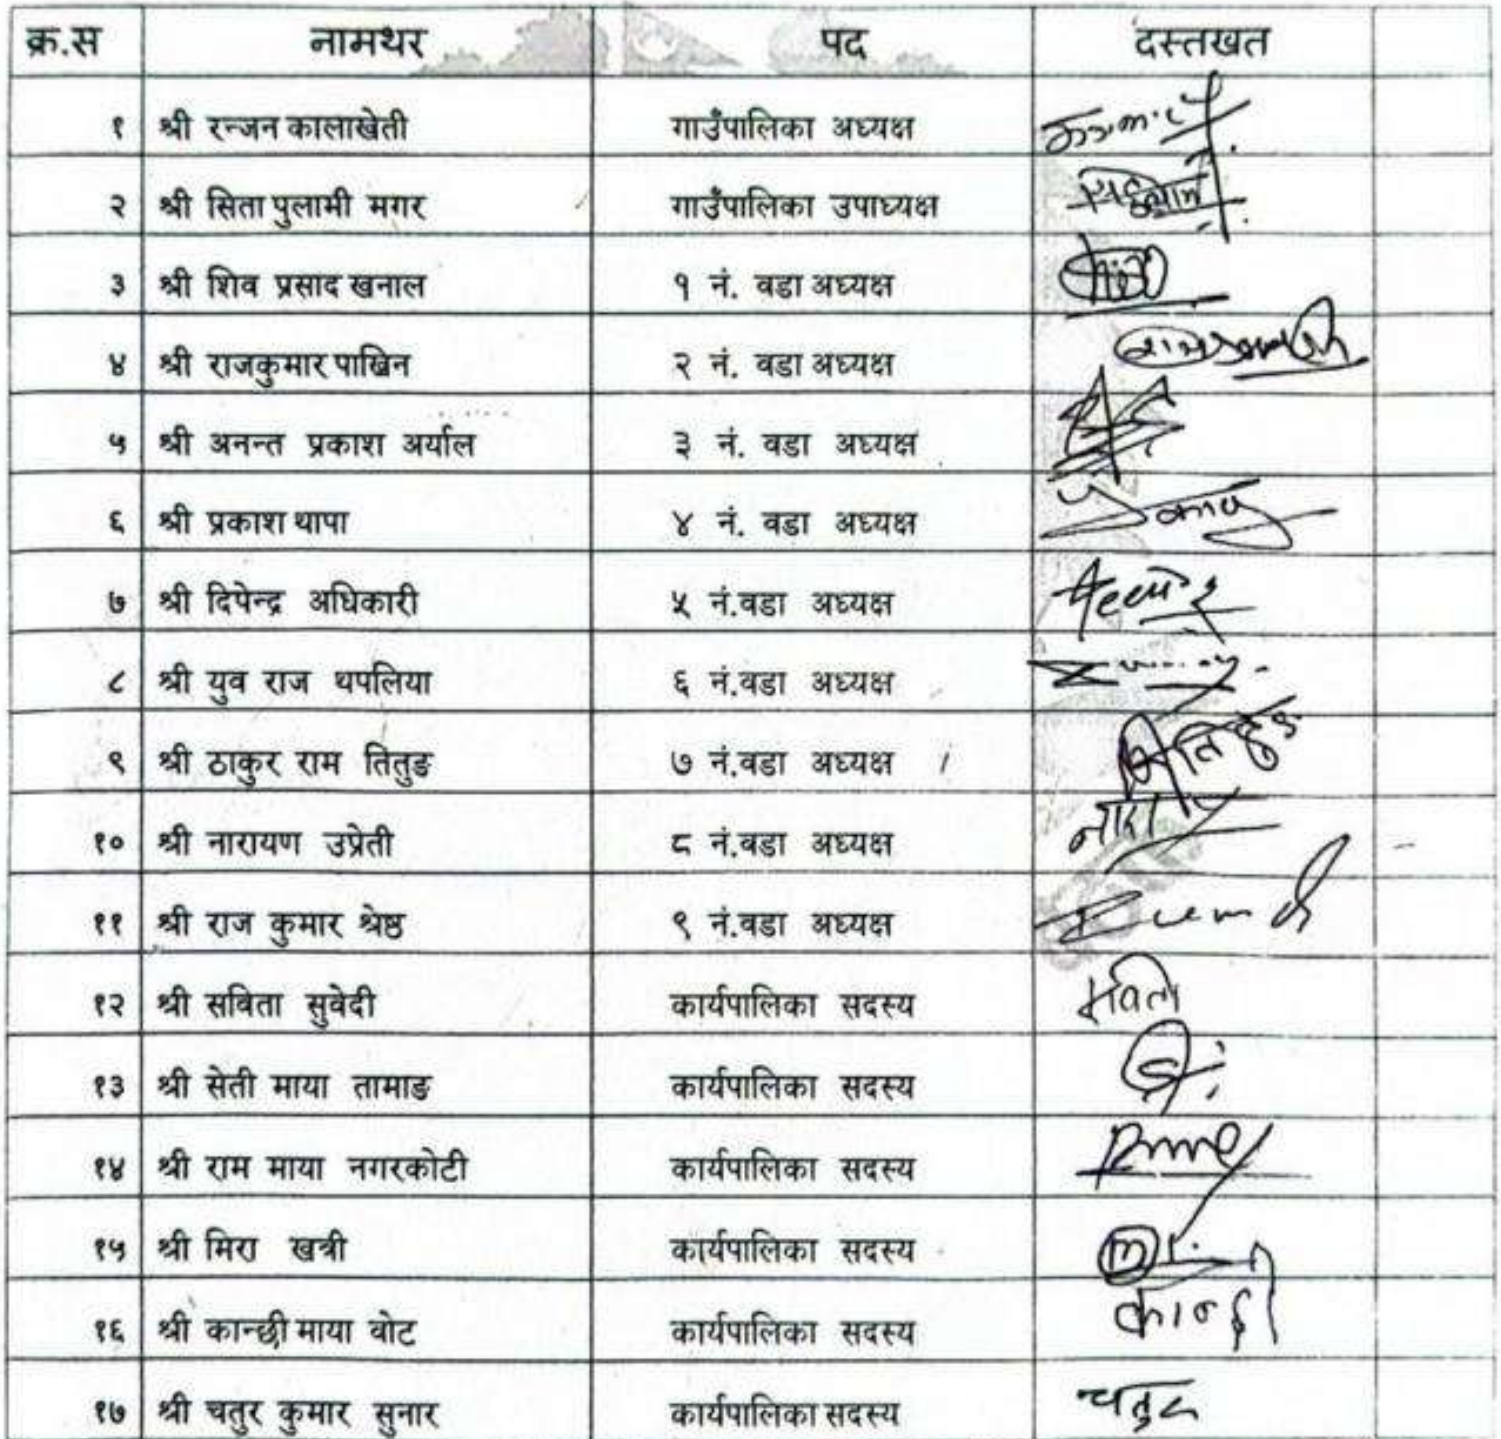 क्र.स नामथर पद दस्तखत
१ श्री रन्जन कालाखेती गाउँपालिका अध्यक्ष
२ श्री सिता पुलामी मगर गाउँपालिका उपाध्यक्ष
३ श्री शिव प्रसाद खनाल १ नं. वडा अध्यक्ष
४ श्री राजकुमार पाखिन २ नं. वडा अध्यक्ष
५ श्री अनन्त प्रकाश अर्याल ३ नं. वडा अध्यक्ष
६ श्री प्रकाश थापा ४ नं. वडा अध्यक्ष
७ श्री दिपेन्द्र अधिकारी ५ नं.वडा अध्यक्ष
८ श्री युव राज थपलिया ६ नं.वडा अध्यक्ष
९ श्री ठाकुर राम तितुङ ७ नं.वडा अध्यक्ष
१० श्री नारायण उप्रेती ८ नं.वडा अध्यक्ष
११ श्री राज कुमार श्रेष्ठ ९ नं.वडा अध्यक्ष
१२ श्री सविता सुवेदी कार्यपालिका सदस्य
१३ श्री सेती माया तामाङ कार्यपालिका सदस्य
१४ श्री राम माया नगरकोटी कार्यपालिका सदस्य
१५ श्री मिरा खत्री कार्यपालिका सदस्य
१६ श्री कान्छी माया वोट कार्यपालिका सदस्य
१७ श्री चतुर कुमार सुनार कार्यपालिका सदस्य चतुर